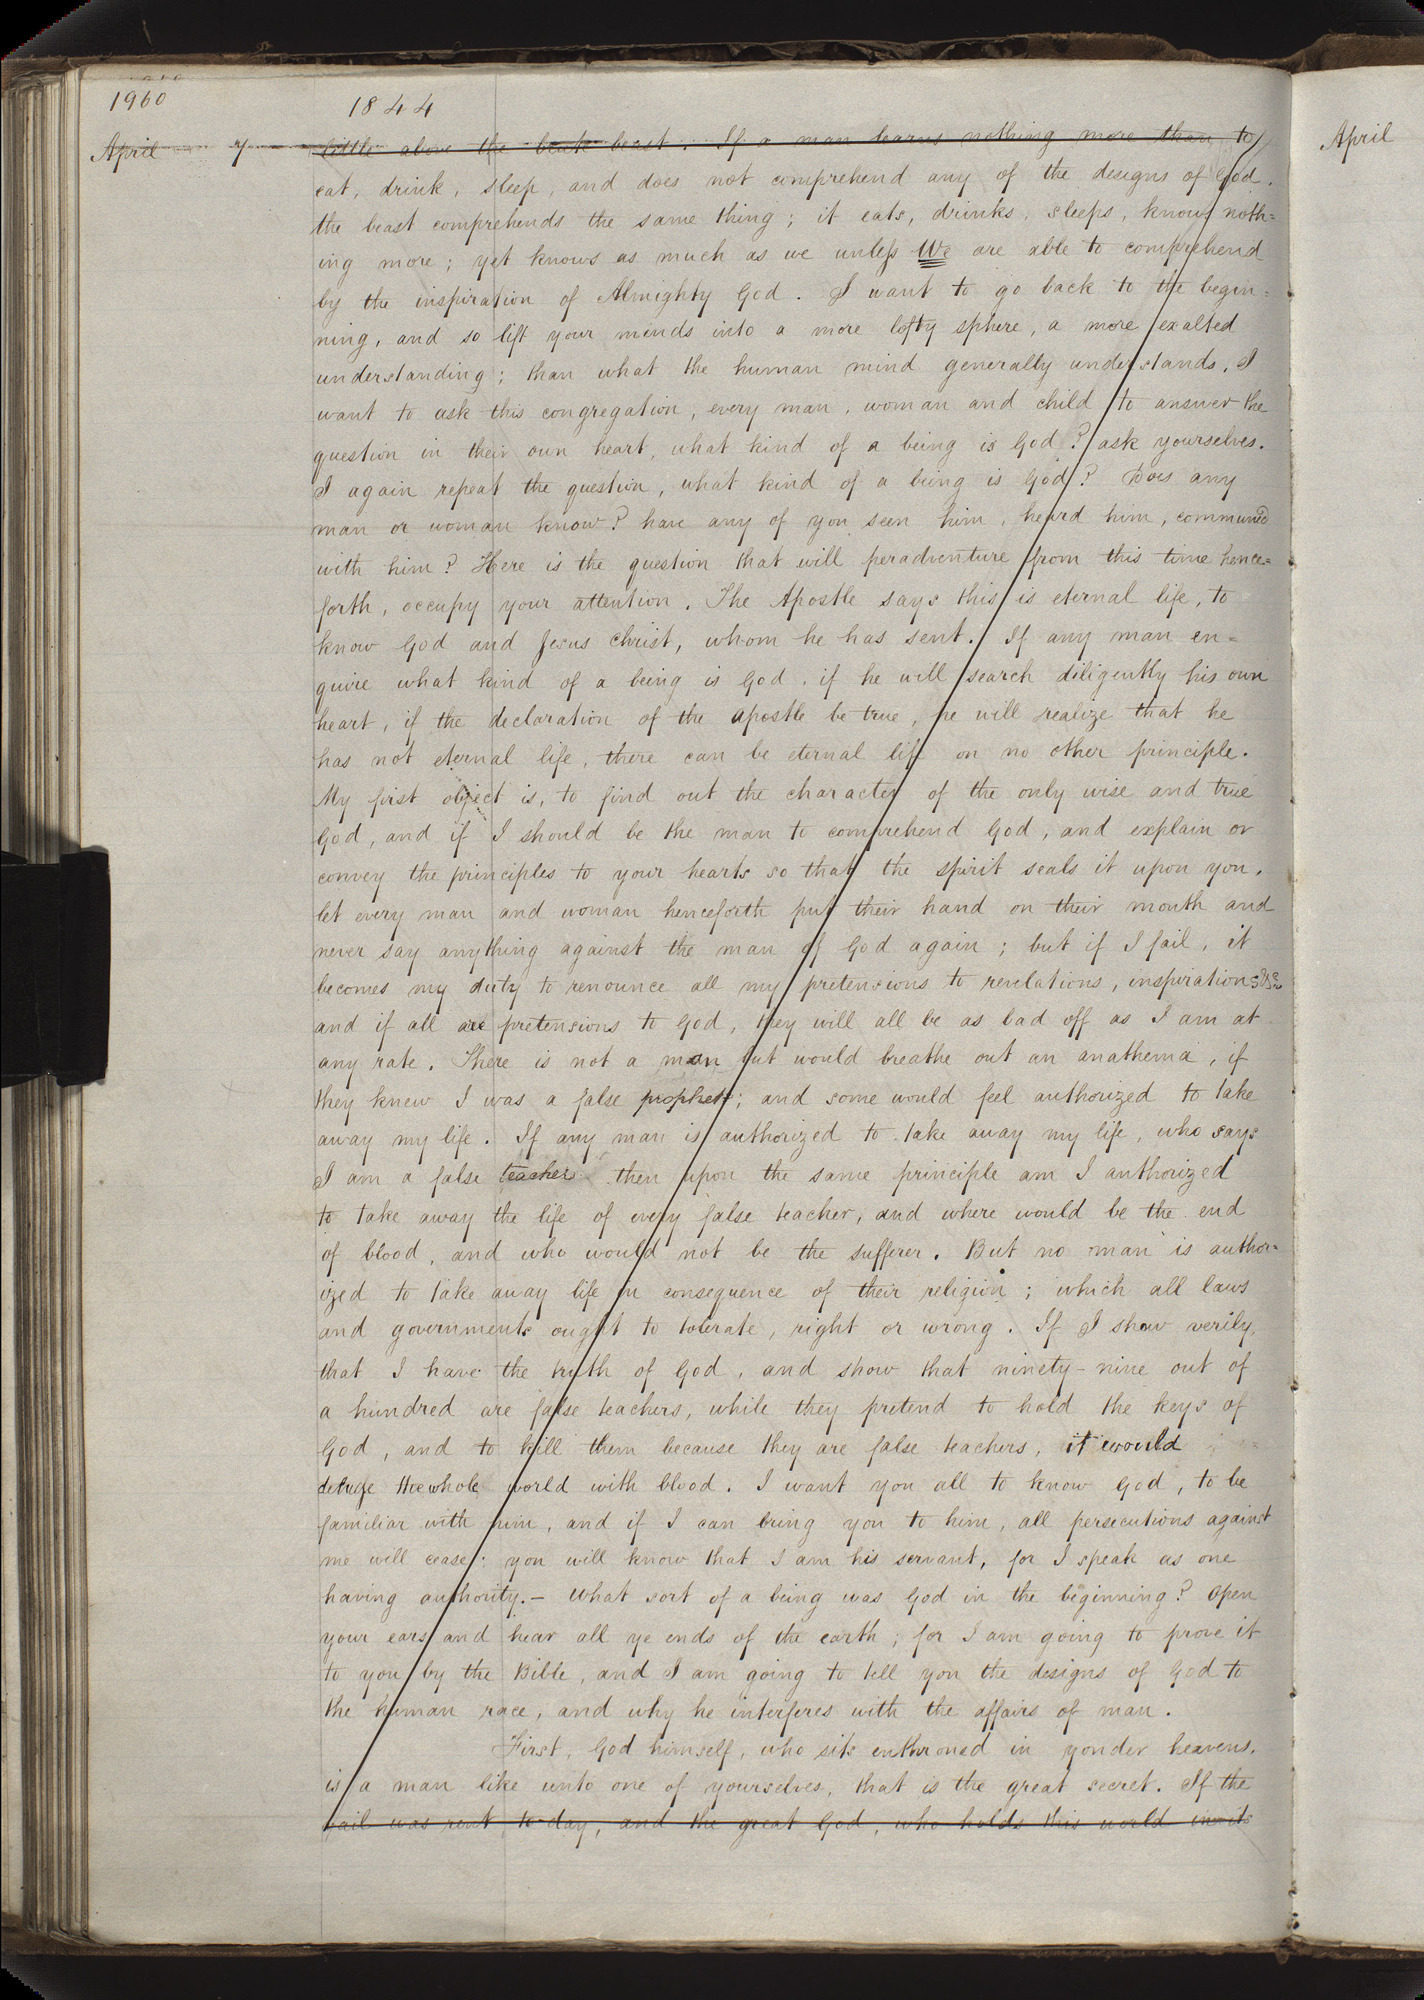 1960
1844
April 7 little above the brute beast. If a man learns nothing more than to
eat, drink, sleep, and does not comprehend any of the designs of God,
the beast comprehends the same thing; it eats, drinks, sleeps, knows noth=
ing more; yet knows as much as we unless We are able to comprehend
by the inspiration of Almighty God. I want to go back to the begin=
ning, and so lift your minds into a more lofty sphere, a more exalted
understanding; than what the human mind generally understands. I
want to ask this congregation, every man, woman and child to answer the
question in their own heart, what kind of a being is God? ask yourselves.
I again repeat the question, what kind of a being is God? Does any
man or woman know? have any of you seen him, heard him, communed
with him? Here is the question that will peradventure from this time hence=
forth, occupy your attention. The Apostle says this is eternal life, to
know God and Jesus Christ, whom he has sent. If any man en=
quire what kind of a being is God, if he will search diligently his own
heart, if the declaration of the apostle be true, he will realize that he
has not eternal life, there can be eternal life on no other principle.
My first object is, to find out the character of the only wise and true
God, and if I should be the man to comprehend God, and explain or
convey the principles to your hearts so that the spirit seals it upon you,
let every man and woman henceforth put their hand on their mouth and
never say anything against the man of God again; but if I fail, it
becomes my duty to renounce all my pretensions to revelations, inspirations &c
and if all are pretensions to God, they will all be as bad off as I am at
any rate. There is not a man but would breathe out an anathema, if
they knew I was a false prophet; and some would feel authorized to take
away my life. If any man is authorized to take away my life, who says
I am a false teacher then upon the same principle am I authorized
to take away the life of every false teacher, and where would be the end
of blood, and who would not be the sufferer. But no man is author=
ized to take away life in consequence of their religion; which all laws
and governments ought to tolerate, right or wrong. If I show verily,
that I have the truth of God, and show that ninety-nine out of
a hundred are false teachers, while they pretend to hold the keys of
God, and to kill them because they are false teachers, it would
deluge the whole world with blood. I want you all to know God, to be
familiar with him, and if I can bring you to him, all persecutions against
me will cease: you will know that I am his servant, for I speak as one
having authority.— What sort of a being was God in the beginning? Open
your ears and hear all ye ends of the earth; for I am going to prove it
to you by the Bible, and I am going to tell you the designs of God to
the human race, and why he interferes with the affairs of man.
First, God himself, who sits enthroned in yonder heavens,
is a man like unto one of yourselves, that is the great secret. If the
vail was rent to-day, and the great God, who holds this world in its
April